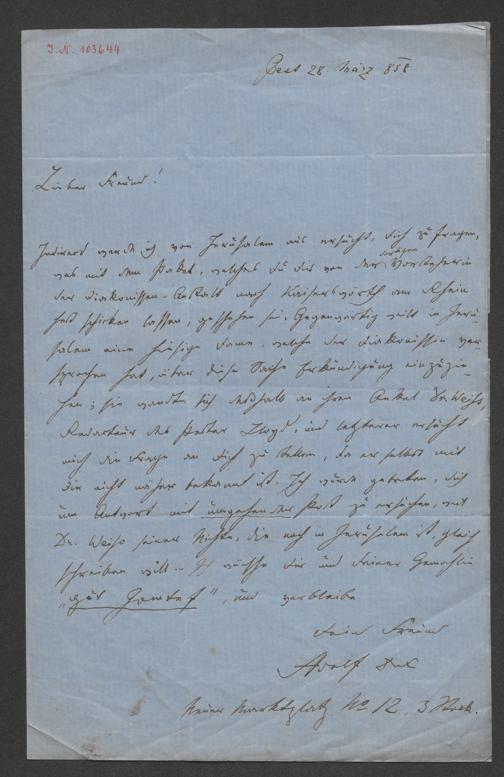 I.N. 103644
Pest 28. März 858
Lieber Freund!
Indirect werde ich von Jerusalem aus ersucht, dich zu fragen,
was mit dem Paket, welches du dir von der Vorsteherin
der Diakonissen-Anstalt nach Kaiserswörth am Rhein
hast schicken lassen, geschehen sei. Gegenwärtig weilt in Jeru-
salem eine hiesige Dame, welche der Diakonissin ver-
sprochen hat, über diese Sache Erkundigung einzuzie-
hen; sie wandte sich deßhalb an ihren Onkel Dr. Weiss,
Redacteur des Pester Lloyd, und letzterer ersucht
mich die Frage an dich zu stellen, da er selbst mit
dir nicht näher bekannt ist. Ich würde gebeten, dich
um Antwort mit umgehender Post zu ersuchen, weil
Dr. Weiss seiner Nichte, die noch in Jerusalem ist, gleich
schreiben will. – Ich wünsche dir und deiner Gemahlin
„gut Jomtef“, und verbleibe
dein Freund
Adolf
Neuer Marktplatz No 12, 3. Stock.